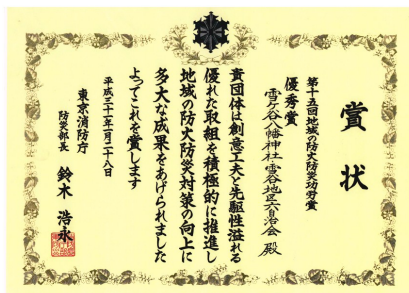 賞状
第十五回地域の防火防災功労賞
優秀賞
雪ケ谷八幡神社雪谷地区六自治会 殿
貴団体は創意工夫や先駆性溢れる
優れた取組を積極的に推進し
地域の防火防災対策の向上に
多大な成果をあげられました
よってこれを賞します
平成三十一年一月二十八日
東京消防庁
防災部長 鈴木 浩永